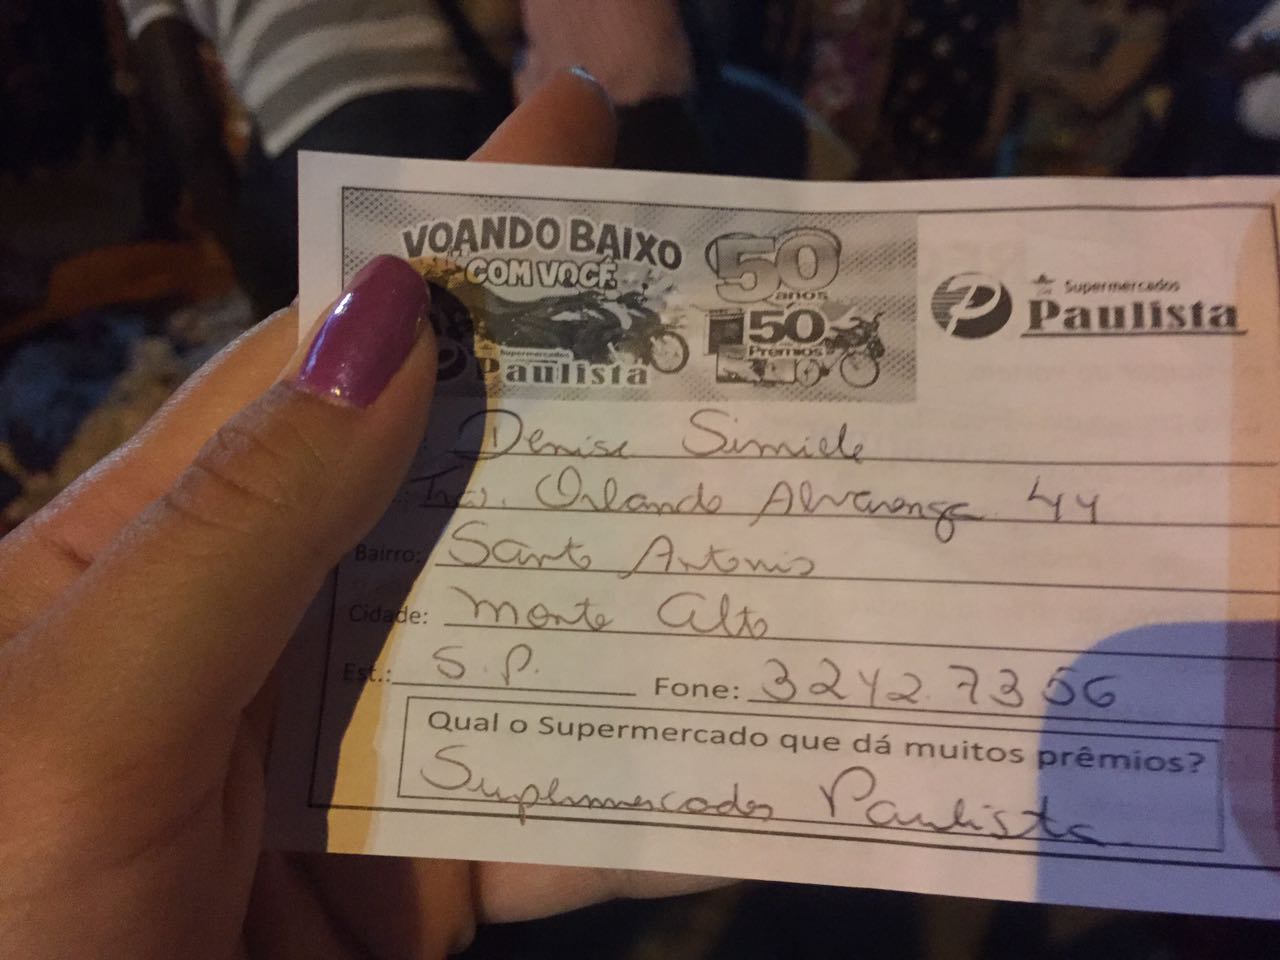 VOANDO BAIXO
COM VOCÊ
Supermercados
Paulista
50
anos
50
Prêmios
Supermercados
Paulista
Denise Simiele
Trav. Orlando Alvarenga 44
Bairro: Santo Antonio
Cidade: Monte Alto
Est.: S.P. Fone: 3242.7356
Qual o Supermercado que dá muitos prêmios?
Suplimercados Paulista